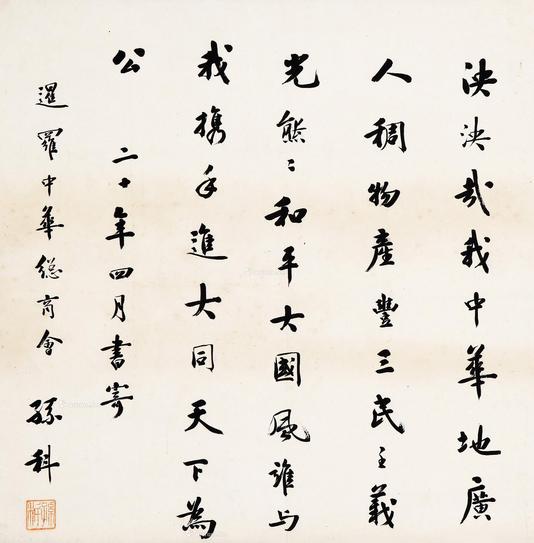 泱泱哉我中華地廣
人稠物產豐三民主義
光熊〻和平大國風誰与
我携手進大同天下為
公 二十年四月書寄
暹羅中華總商會 孫科